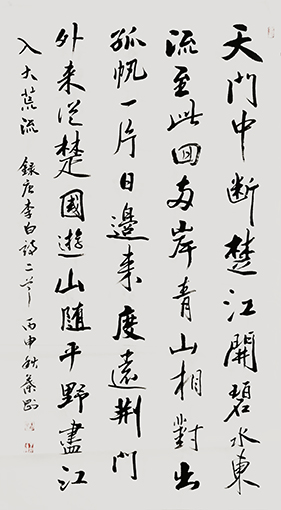 天門中断楚江開碧水東
流至此回两岸青山相對出
孤帆一片日邊来度遠荆門
外来從楚國遊山随平野盡江
入大荒流 録唐李白詩二首 丙申秋